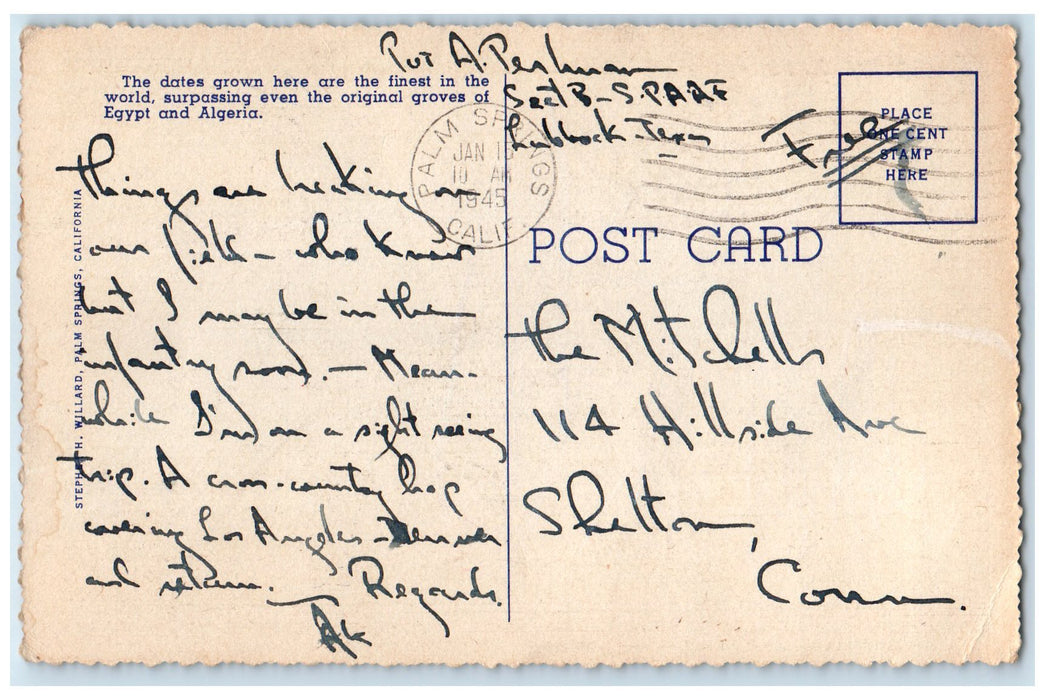 The dates grown here are the finest in the
world, surpassing even the original groves of
Egypt and Algeria.
Pvt A. Perlman
Sect B - S.P.A.A.F
Lubbock - Texas
Free
PLACE
ONE CENT
STAMP
HERE
PALM SPRINGS
JAN
10 AM
1945
CALIF.
POST CARD
STEPHEN H. WILLARD, PALM SPRINGS, CALIFORNIA
Things are breaking on
our field - who knows
but I may be in the
infantry soon. - Mean-
while I'm on a sight seeing
trip. A cross-country hop
covering Los Angeles - Denver
and return. Regards.
The Mitchells
114 Hillside Ave
Shelton,
Conn.